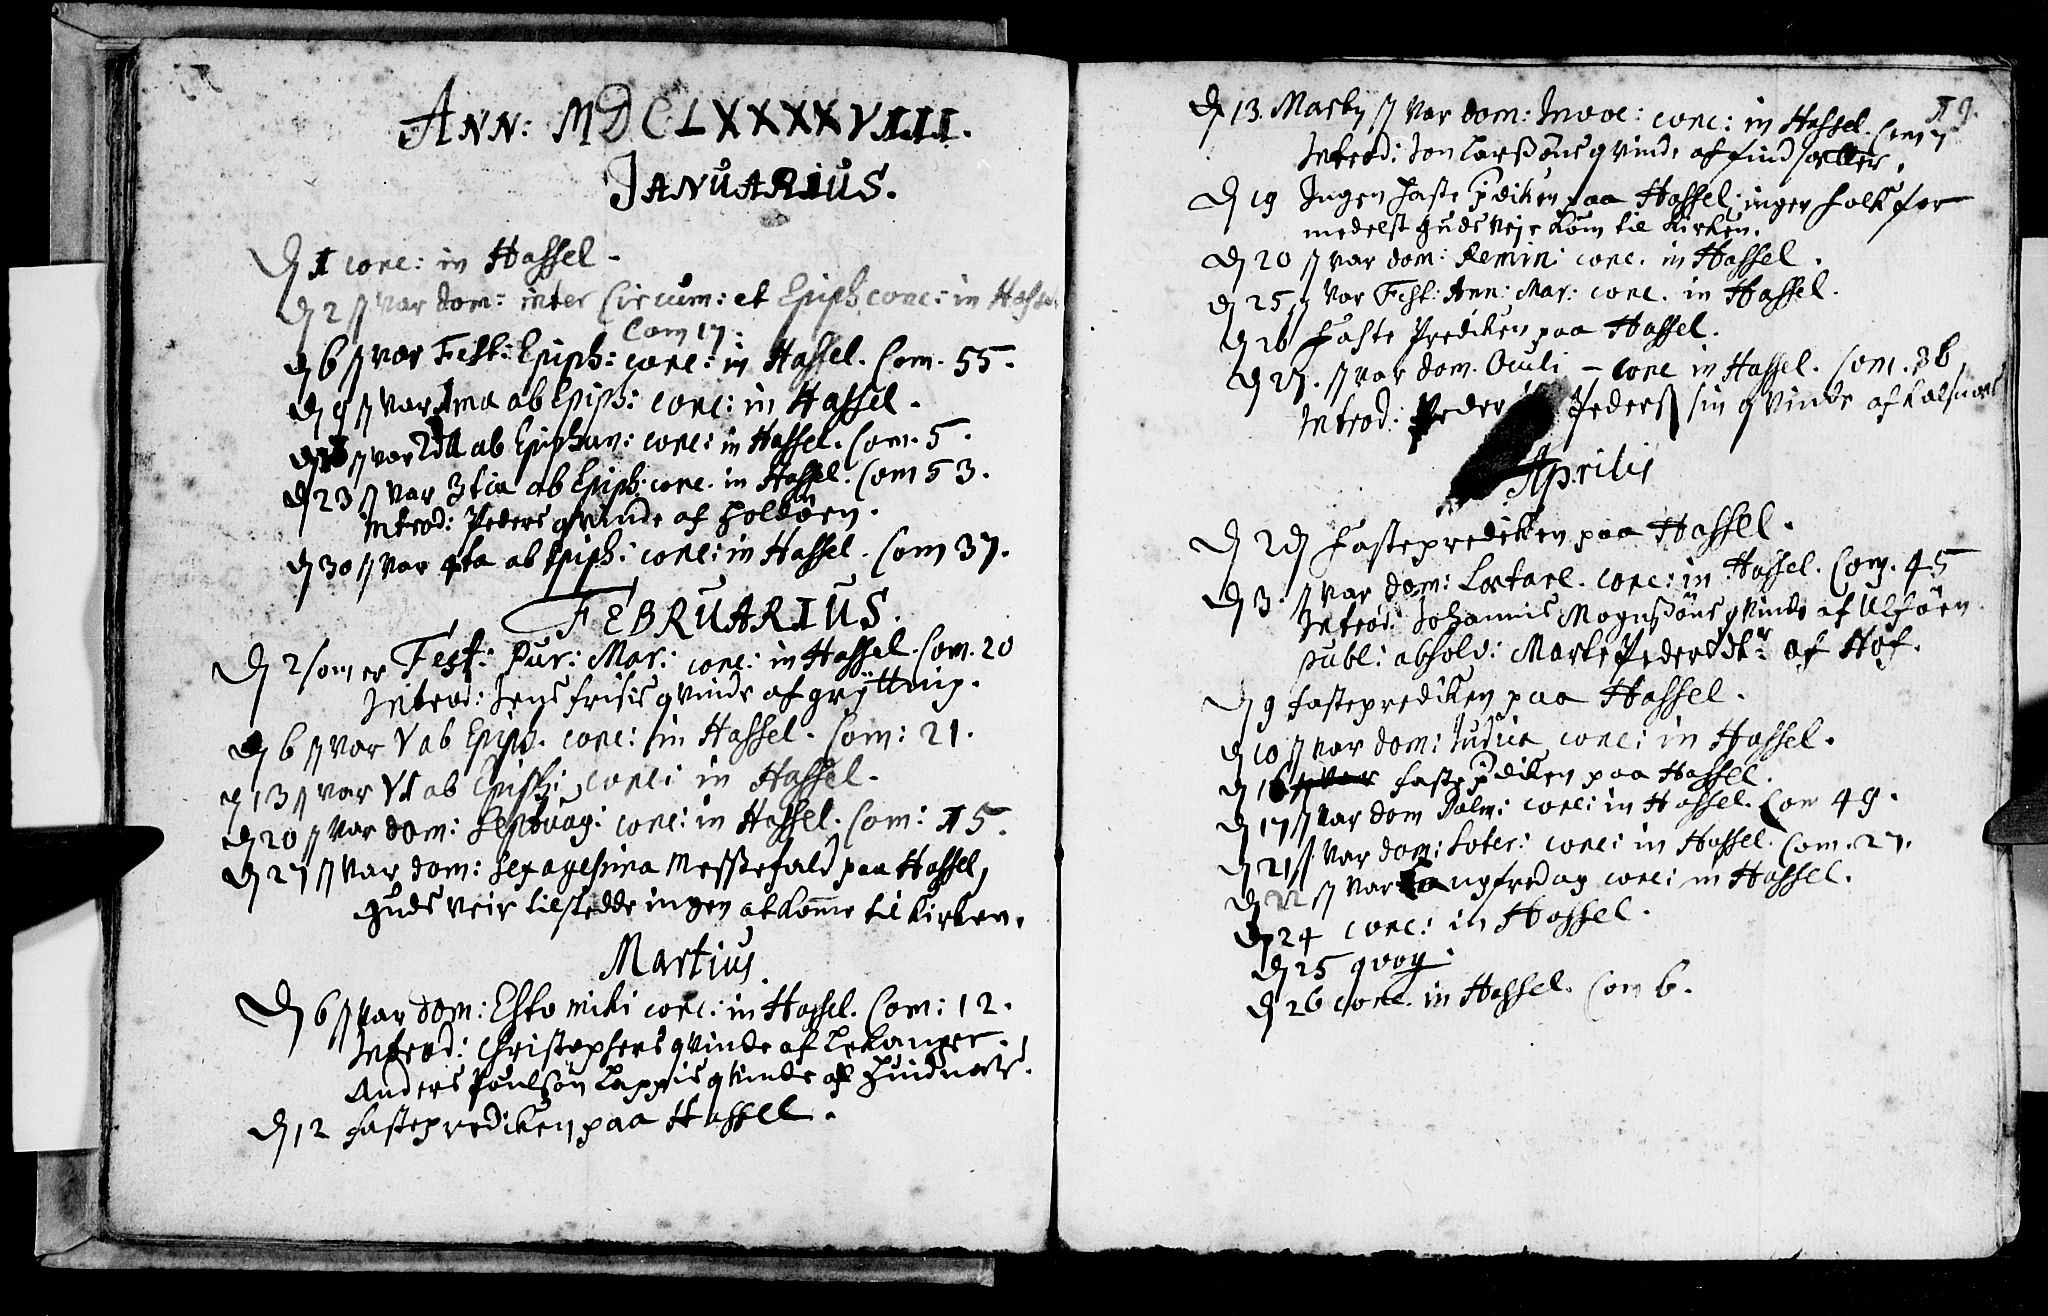 ANN: MDCLXXXXVIII.
JANUARIUS.
D 1 conc: in Hassel.
D 2 s var dom: inter Circum: et Epiph conc: in Hassel.
Com 17.
D 6 s var Fest: Epiph: conc: in Hassel. Com. 55.
D 9 s var 1ma ab Epiph: conc: in Hassel.
D 16 s var 2da ab Epiphan: conc: in Hassel. Com. 5.
D 23 s var 3tia ab Epiph: conc. in Hassel. Com 53.
Introd: Peders qvinde af Holdøen.
D 30 s var 4ta ab Epiph: conc: in Hassel. Com 37.
FEBRUARIUS.
D 2 som er Fest: Pur: Mar: conc: in Hassel. Com. 20
Introd: Jens frisis qvinde af grÿtting.
D 6 s var V ab Epiph. conc: in Hassel. Com: 21.
D 13 s var VI ab Epiph: conc: in Hassel.
D 20 s var dom: Septuag: conc: in Hassel. Com: 15.
D 27 s var dom: Sexagesima Messefald paa Hassel,
Guds veir tilstedde ingen at komme til Kirken.
Martius.
D 6 s var dom: Esto mihi conc: in Hassel. Com: 12.
Introd: Christophers qvinde af Lekanger.
Anders Poulsøn Lappis qvinde af Huidnæs.
D 12 fasteprediken paa Hassel.
19.
D 13. Marty s var dom: Invoc: conc: in Hassel. Com 7
Introd: Jon Larssøns qvinde af find sætter.
D 19 Ingen faste pdiken paa Hassel, ingen folk for
medelst Guds veje kom til Kirken.
D 20 s var dom: Remin: conc. in Hassel.
D 25 s var Fest: Ann: Mar: conc. in Hassel.
D 26 faste Prediken paa Hassel.
D 27. s var dom. Oculi - conc in Hassel. Com. 36
Introd: Peder Peders sin qvinde af
Aprilis
D 2 D fasteprediken paa Hassel.
D 3 s var dom: Lætare. conc: in Hassel. Com. 45
Introd: Johannis Mognssøns qvinde af Ulføen.
publ: absolv: Marte Pedersdtr af Hof.
D 9 fasteprediken paa Hassel.
D 10 s var dom: Judica conc: in Hassel.
D 16 s var faste pdiken paa Hassel.
D 17 s var dom Palm: conc: in Hassel. Com 49.
D 21 s. var dom: Soter: conc: in Hassel. Com. 27.
D 22 s var Langfredag conc: in Hassel.
D 24 conc: in Hassel.
D 25 qvoq:
D 26 conc. in Hassel. Com 6.